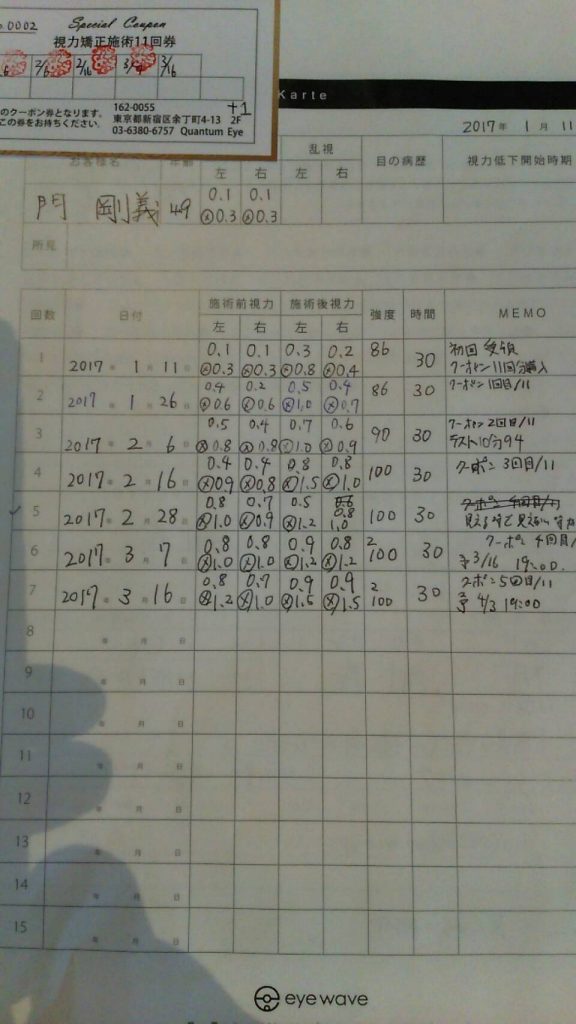 .0002 Special Coupon
視力矯正施術11回券
2/6 2/16 3/ 3/16
のクーポン券となります。 162-0055 +1
この券をお持ちください。 東京都新宿区余丁町4-13 2F
03-6380-6757 Quantum Eye
Karte
2017年 1月 11
お客様名 年齢 乱視 目の病歴 視力低下開始時期
左 右 左 右
門 剛義 49 0.1 0.1
0.3 0.3
所見
回数 日付 施術前視力 施術後視力 強度 時間 MEMO
左 右 左 右
1 2017年 1月 11日 0.1 0.1 0.3 0.2 86 30 初回
0.3 0.3 0.8 0.4 クーポン11回分購入
2 2017年 1月 26日 0.4 0.2 0.5 0.4 86 30 クーポン1回目/11
0.6 0.6 1.0 0.7
3 2017年 2月 6日 0.5 0.4 0.7 0.6 90 30 クーポン2回目/11
0.8 0.8 1.0 0.9 テスト10分94
4 2017年 2月 16日 0.4 0.4 0.8 0.8 100 30 クーポン 3回目/11
0.9 0.8 1.5 1.0
5 2017年 2月 28日 0.8 0.7 0.5 0.6 0.8 100 30 クーポン 4回目/11
1.0 0.9 1.2 1.0
6 2017年 3月 7日 0.8 0.8 0.9 0.8 2 100 30 クーポン 4回目/
1.0 1.0 1.2 1.2 予 3/16 19:00.
7 2017年 3月 16日 0.8 0.7 0.9 0.9 2 100 30 クーポン5回目/11
1.2 1.0 1.5 1.5 予 4/3 19:00
8 年 月 日
9 年 月 日
10 年 月 日
11 年 月 日
12 年 月 日
13 年 月 日
14 年 月 日
15 年 月 日
eyewave